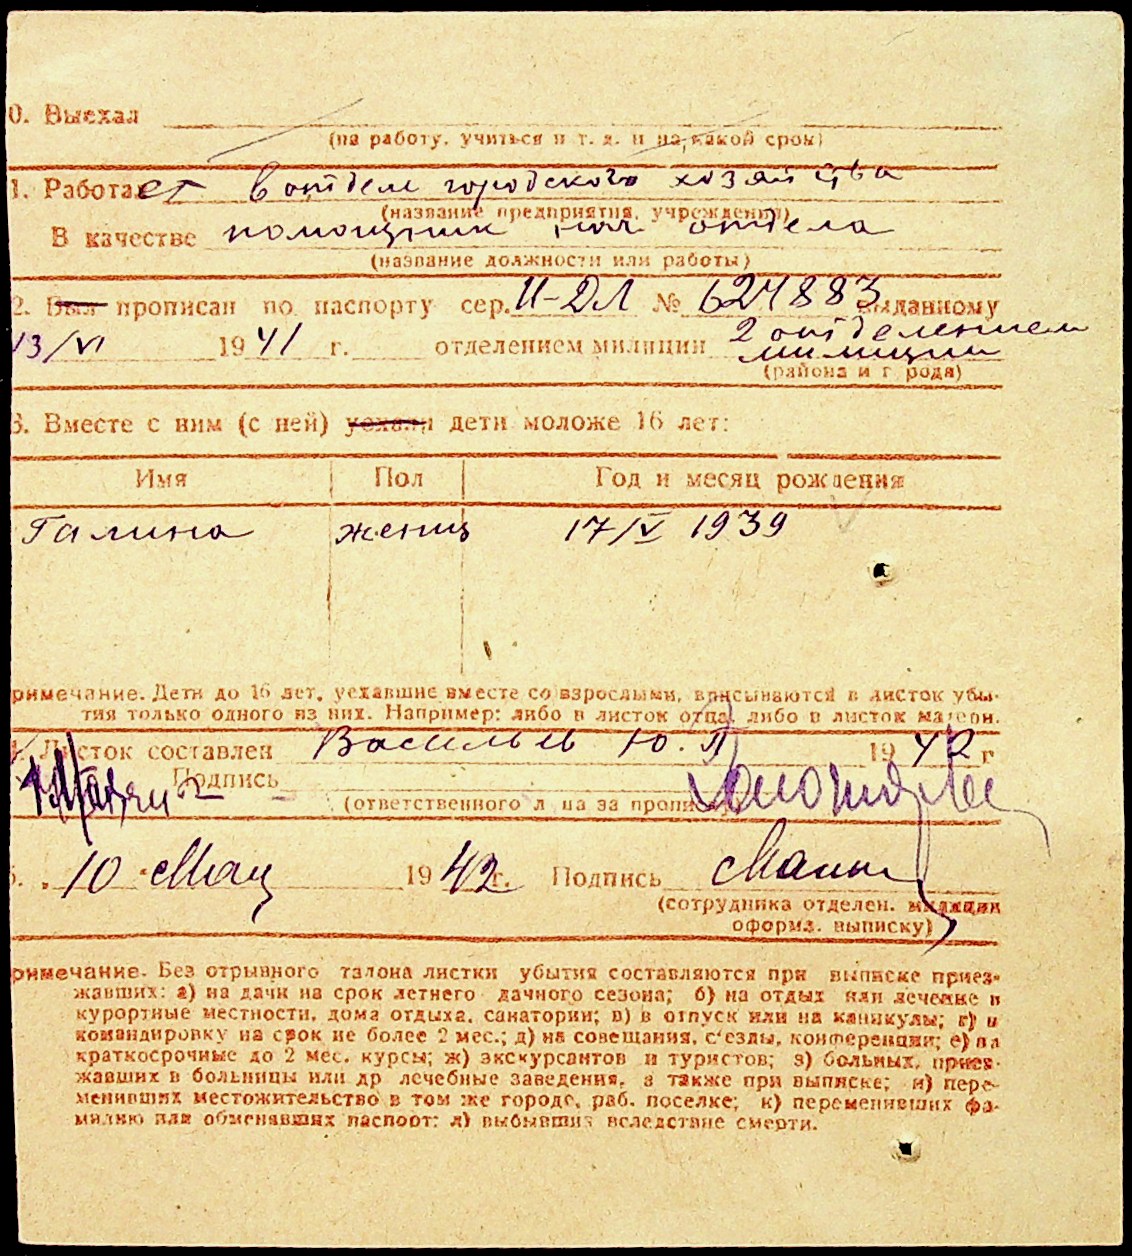 0. Выехал
(на работу, учиться и т. д. и на какой срок)
1. Работает в отделе городского хозяйства
(название предприятия, учреждения)
В качестве помощник нач. отдела
(название должности или работы)
2. Был прописан по паспорту сер. II-ДЛ № 621883 выданному
13/VI 1941 г. отделением милиции 2 отделением
милиции
(района и г рода)
3. Вместе с ним (с ней) уехали дети моложе 16 лет:
Имя Пол Год и месяц рождения
Галина женщ 17/V 1939
римечание. Дети до 16 лет, уехавшие вместе со взрослыми, вписываются в листок убы-
тия только одного из них. Например: либо в листок отца, либо в листок матери.
Листок составлен Васильев Ю. П. 1942 г
Подпись
(ответственного л ца за прописку)
10 Мая 1942 г. Подпись
(сотрудника отделен. милиции
оформл. выписку)
римечание. Без отрывного талона листки убытия составляются при выписке приез-
жавших: а) на дачи на срок летнего дачного сезона; б) на отдых или лечение в
курортные местности, дома отдыха, санатории; в) в отпуск или на каникулы; г) в
командировку на срок не более 2 мес.; д) на совещания, с'езды, конференции; е) на
краткосрочные до 2 мес. курсы; ж) экскурсантов и туристов; з) больных, приез-
жавших в больницы или др лечебные заведения, а также при выписке; и) пере-
менивших местожительство в том же городе, раб. поселке; к) переменивших фа-
милию или обменявших паспорт; л) выбывших вследствие смерти.